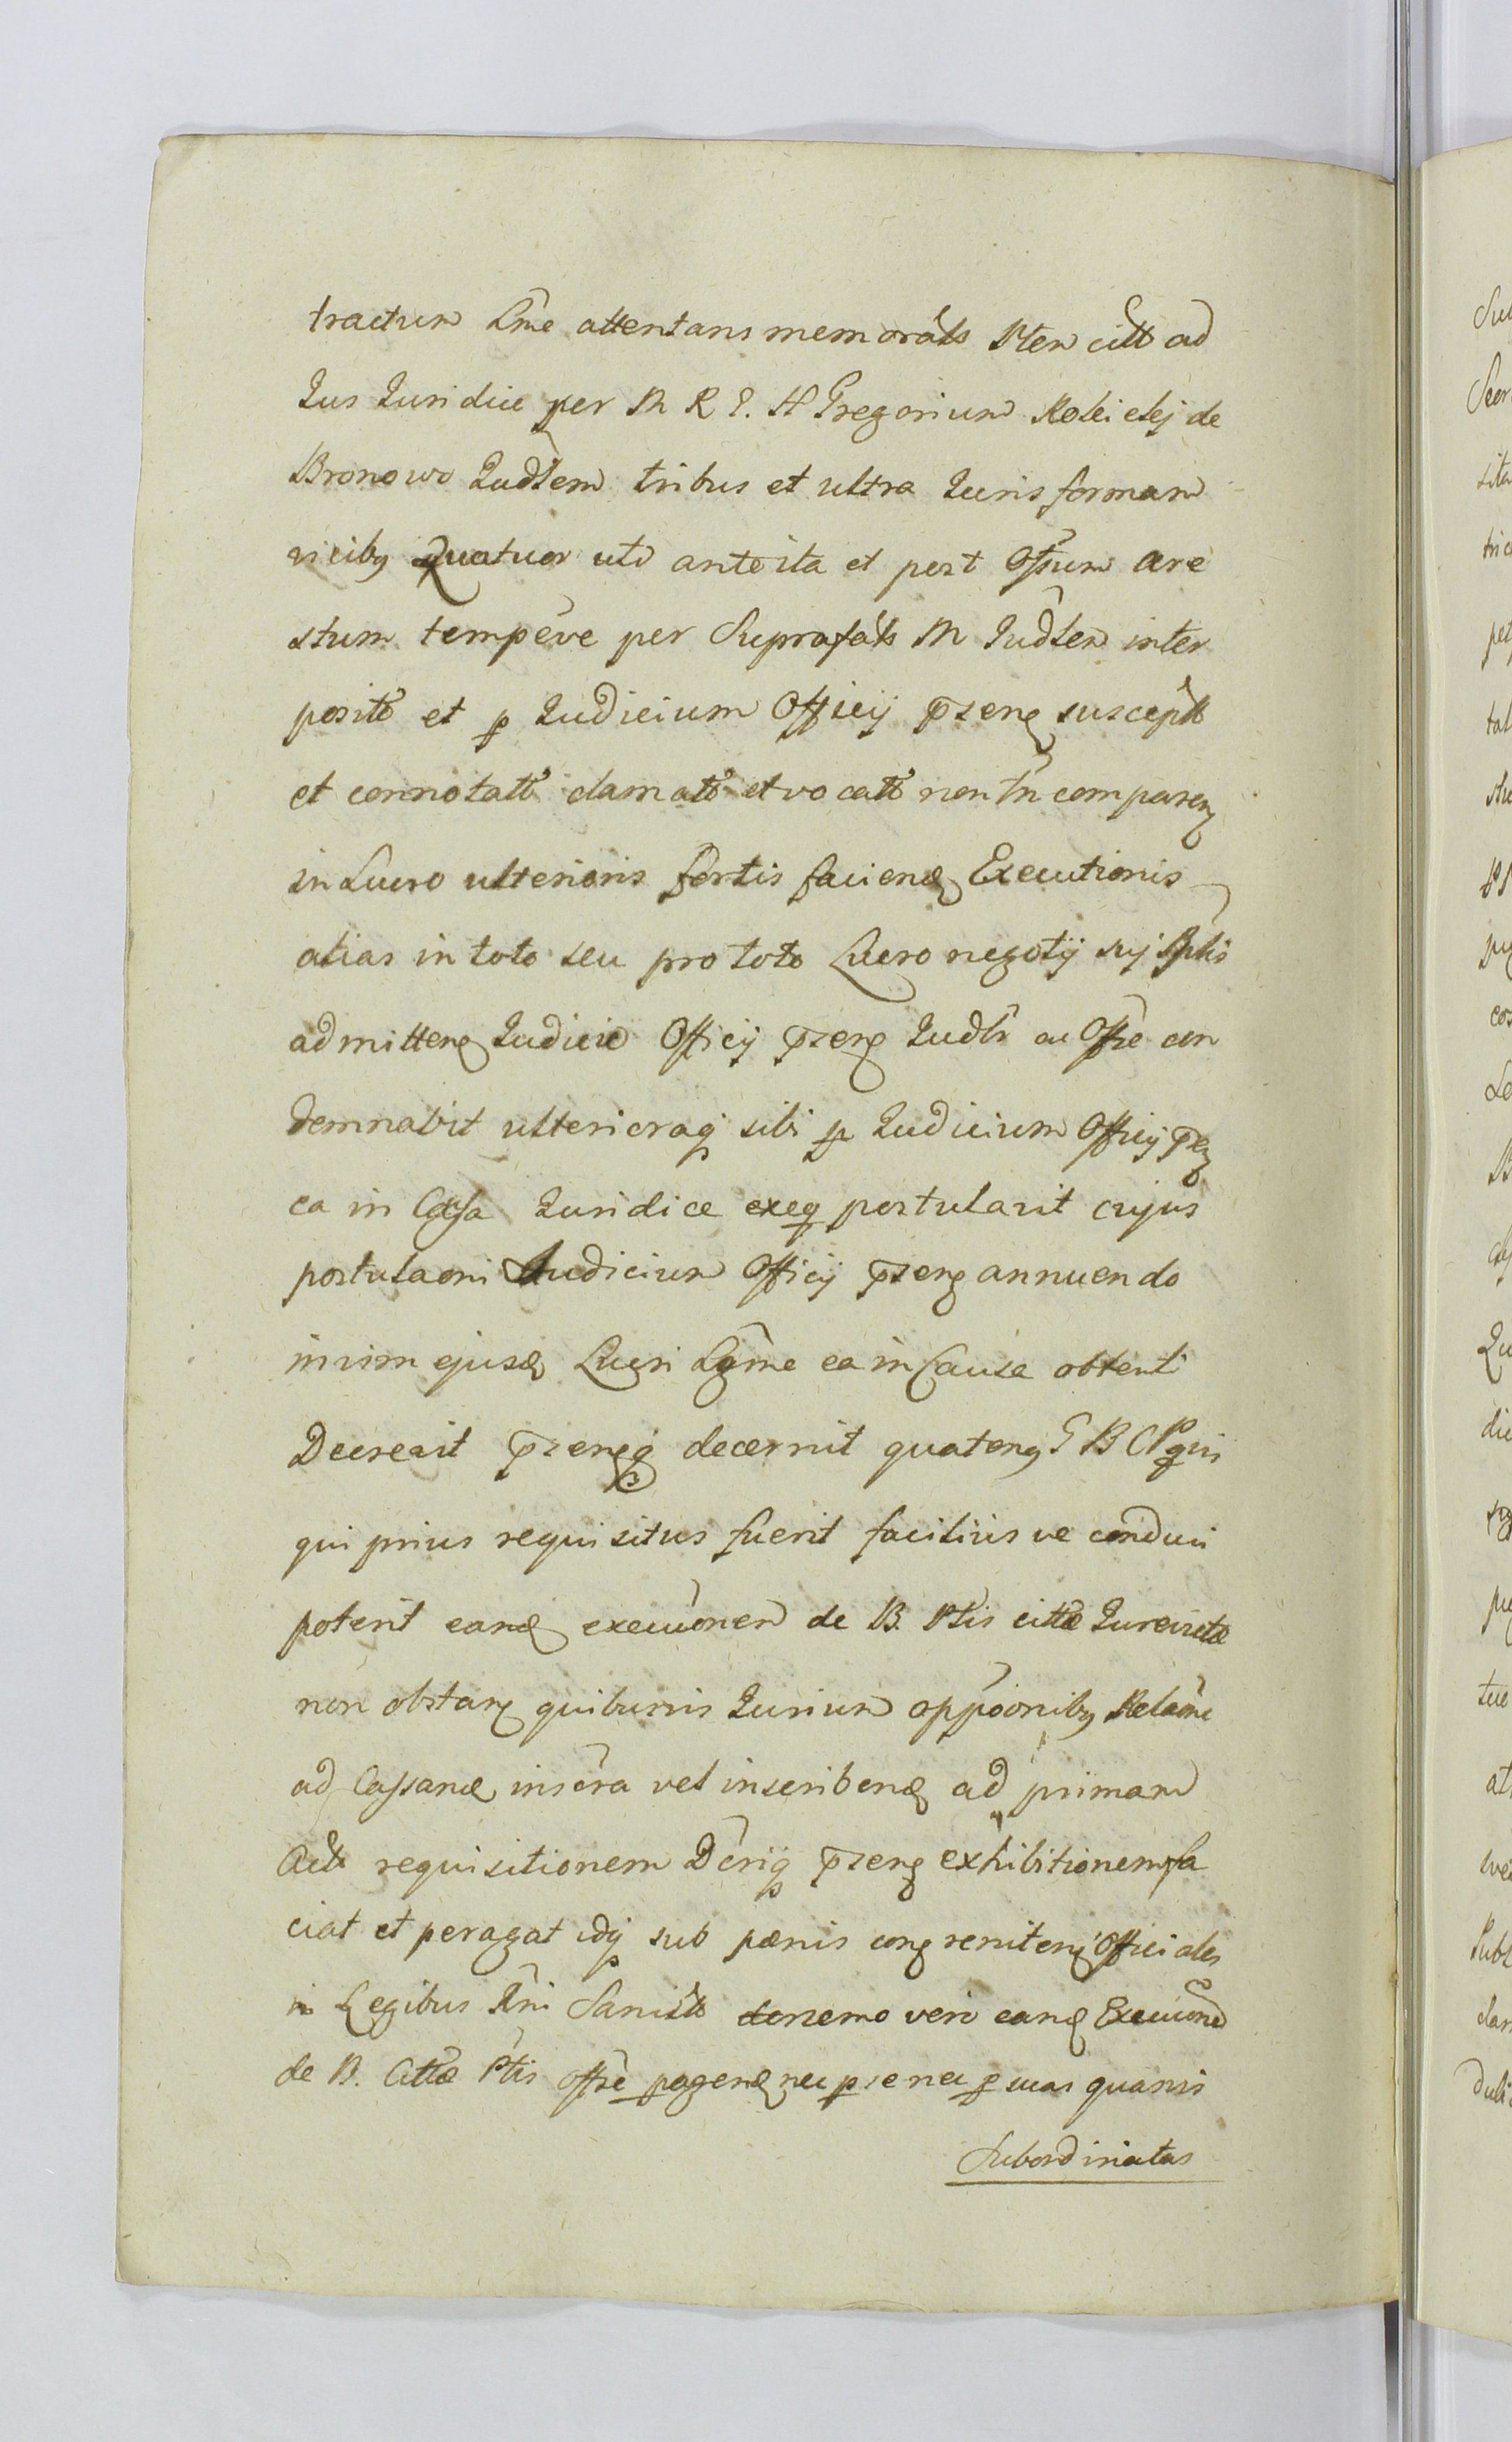 tractum Lgme attentans memorats Ptem citt ad
Jus Juridice per M R P. H Gregorium de
Bronowo Judlem tribus et ultra Juris formam
vicibq Quatuor uti ante ita et post Offsum are
stum tempére per Suprafáts M Judlem inter
posito et p Judicium Officij pzenq suscepto
et connotatt clamatt et vocatt non tn comparenq
in Lucro ulterioris fortis faciend Executionis
alias in toto seu pro toto Lucro negotij sui Splis
admittenq Judicio Officij pzenq Judlr ac Offse con
demnabit ulterioraq sibi p Judicium Officij pzenq
ea in Causa Juridice exeq postulavit cujus
postulaoni Judicium Officij pzenq annuendo
in vim ejusd Lucri Lgme ea in Causa obtenti
Decrevit pzenqq decernit quatenq G B C P quis
qui prius requisitus fuerit facilius ve conduci
poterit eand execuonem de B. Ptis cittæ Jurevictæ
non obstanq quibusvis Jurium oppoonibq Relaone
ad Cassand inscra vel inscribend ad primam
Acts requisitionem Dcriq pzenq exhibitionem fa
ciat et peragat idq sub pænis conq renitenq Officiales
in Legibus Rni Sancits nemo vero eand Execuone
de B. Cittæ Ptis offse pagend nec p se nec p suas quasvis
Subordinatas